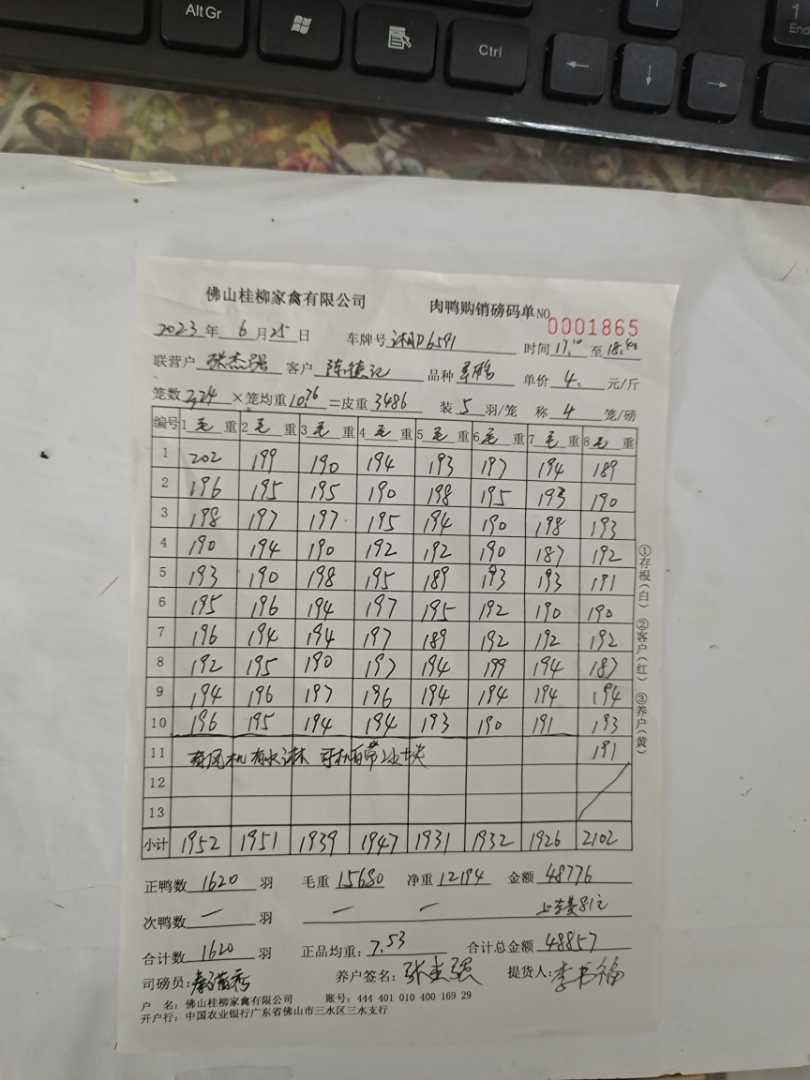 AltGr
Ctrl
End
佛山桂柳家禽有限公司 肉鸭购销磅码单 NO 0001865
2023年 6月25日 车牌号 湘D6591 时间 17:10 至 18:
联营户 张杰强 客户 陈德记 品种 单价 4. 元/斤
笼数 324 ×笼均重 10.76 =皮重 3486 装 5 羽/笼 称 4 笼/磅
编号 1 毛 重 2 毛 重 3 毛 重 4 毛 重 5 毛 重 6 毛 重 7 毛 重 8 毛 重
1 202 199 190 194 193 197 194 189
2 196 195 195 190 198 195 193 190
3 198 197 197 195 194 190 198 193
4 190 194 190 192 192 190 187 192
5 193 190 198 195 189 193 193 191
6 195 196 194 197 195 192 190 190
7 196 194 194 197 189 192 192 192
8 192 195 190 197 194 199 194 187
9 194 196 197 196 194 194 194 194
10 196 195 194 194 193 190 191 193
11 有风机 有水淋 司机自带 191
12
13
小计 1952 1951 1939 1947 1931 1932 1926 2102
①存根(白) ②客户(红) ③养户(黄)
正鸭数 1620 羽 毛重 15680 净重 12194 金额 48776
次鸭数 一 羽 一 一 81元
合计数 1620 羽 正品均重: 7.53 合计总金额 48857
司磅员: 养户签名: 张杰强 提货人: 李书福
户 名: 佛山桂柳家禽有限公司 账号: 444 401 010 400 169 29
开户行: 中国农业银行广东省佛山市三水区三水支行